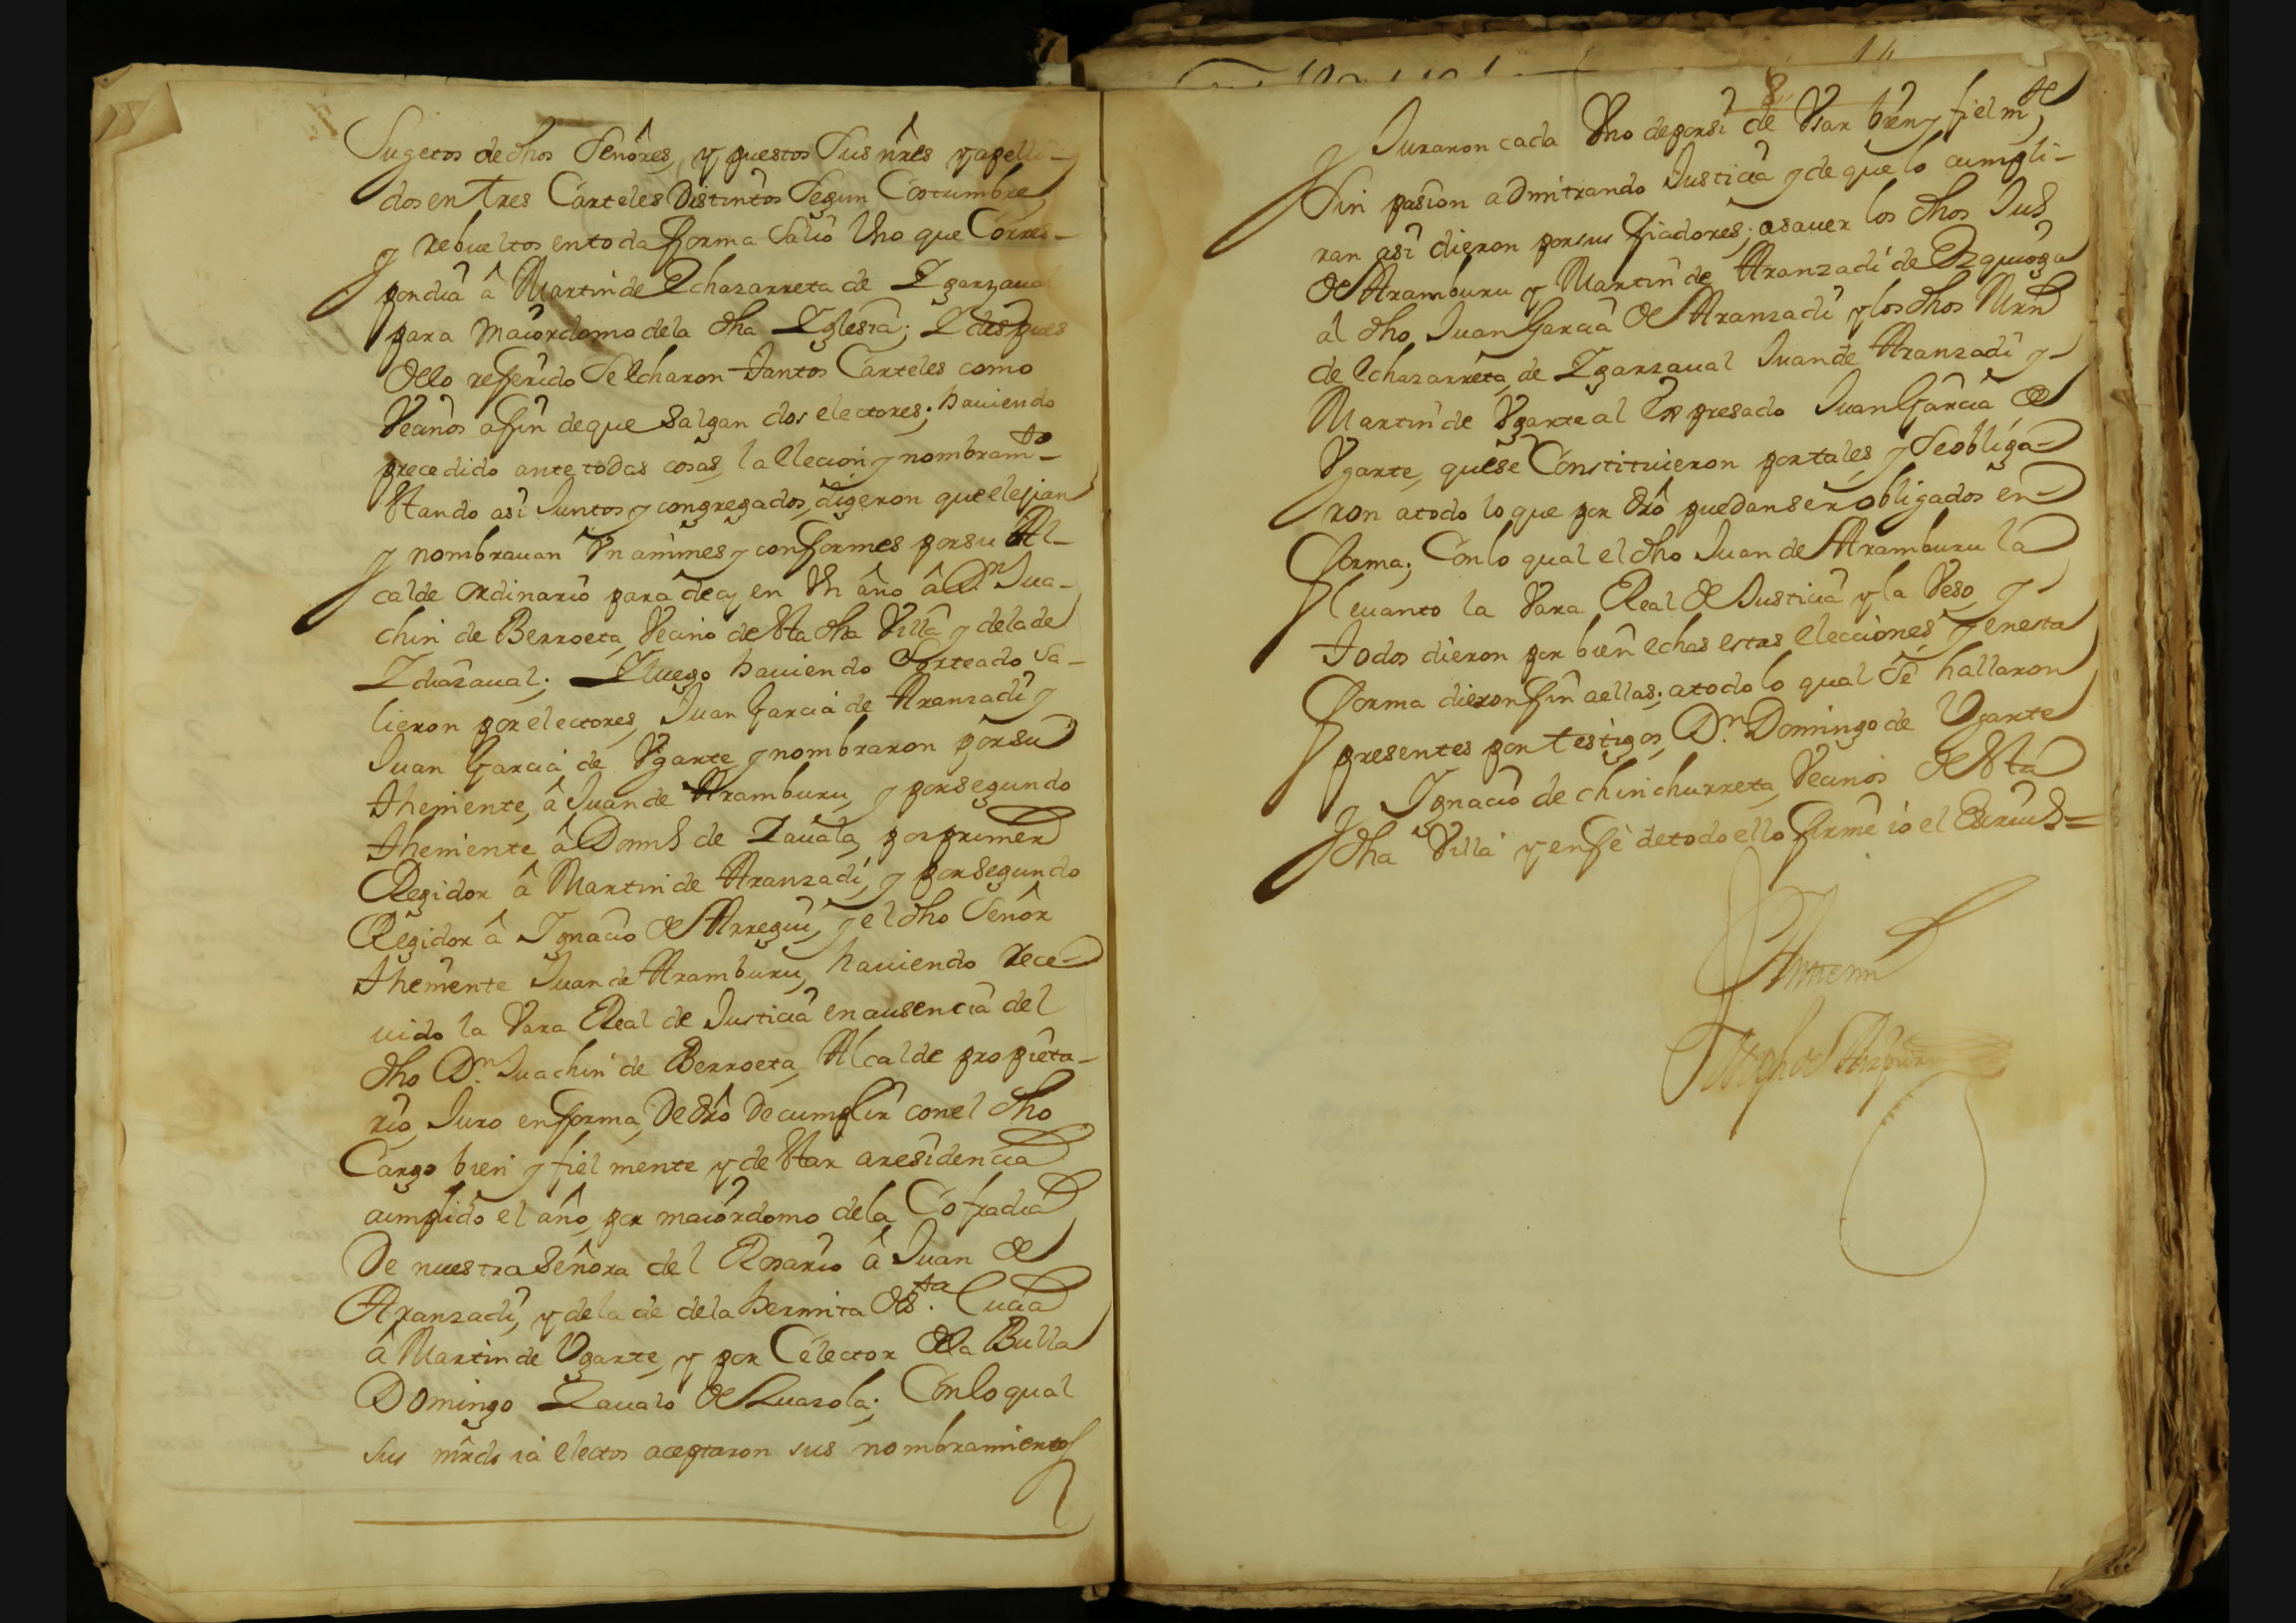 Sugetos de dhos Señores, y puestos sus nr̃es y apelli-
dos en tres Carteles Distintos Segun Costumbre
y rebueltos en toda forma Salio Vno que Corres-
pondia â Martin de Echasarreta de Ygarzaval
para maiordomo de la dha Yglesia; Y despues
dello referido Se Echaron tantos Carteles como
Vecinos afin de que Salgan dos electores; haviendo
precedido ante todas cosas, la Elecion y nombramto
Estando asi Juntos y congregados, digeron que elejian
y nombravan Vnanimes y conformes por su Al-
calde ordinario para de aq en Vn año â Dn. Jua-
chin de Berroeta, Vecino de Esta dha Villa y de la de
Ydiazaval; Y luego haviendo Sorteado Sa-
lieron por electores, Juan Garcia de Aranzadi y
Juan Garcia de Vgarte, y nombraron por su
theniente, â Juan de Aramburu, y por segundo
theniente â Doms de Zavala, por primer
Regidor â Martin de Aranzadi, y por segundo
Regidor â Ygnacio de Arregui, y el dho Señor
theniente Juan de Aramburu, haviendo rece-
uido la Vara Real de Justicia en ausencia del
dho Dn. Juachin de Berroeta, Alcalde propieta-
rio, Juro en forma, De dro De cumplir con el dho
Cargo bien y fiel mente y de Estar a residencia
cumplido el año, por maiordomo de la Cofradia
De nuestra Señora del Rosario â Juan de
Aranzadi, y de la de de la hermita de Sta. Lucia
â Martin de Vgarte, y por Celector de la Bulla
Domingo Zavalo de Luazola; Con lo qual
sus mrds ia Electos aceptaron sus nombramientos
8
y Juraron cada Vno de por si de Vsar bien y fielmte
Sin pasion admitrando Justicia y de que lo cumpli-
ran asi dieron por sus fiadores; asaver los dhos Jus
de Aramburu y Martin de Aranzadi de Ezquioga
al dho Juan Garcia de Aranzadi y los dhos Mrn
de Echasarreta de Ygarzaval Juan de Aranzadi y
Martin de Vgarte al Expresado Juan Garcia de
Vgarte, que se Constituieron por tales, y se obliga-
ron a todo lo que por dro puedan ser obligados en
forma; Con lo qual el dho Juan de Aramburu la
levanto la Vara Real de Justicia y la Veso y
todos dieron por bien echas estas Elecciones, y en esta
forma dieron fin a ellas; a todo lo qual Se hallaron
presentes por testigos, Dn. Domingo de Vgarte
y Ygnacio de Chinchurreta, Vecinos de Esta
dha Villa y en fe de todo ello firme io el Escriuo =
Antemi
Joseph de